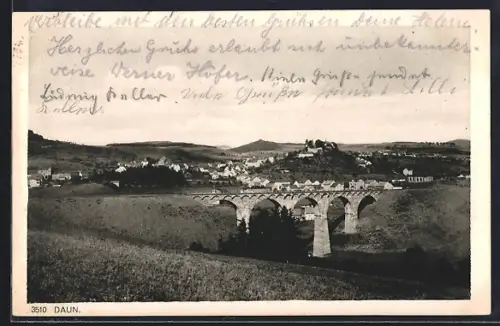 verbleibe mit den besten Grüßen Deine Helene
Herzlichen Gruß erlaubt sich unbekannter
weise Werner Höfer. Viele Grüße sendet
Ludwig Viele Grüße sendet Lilli
3510 DAUN.